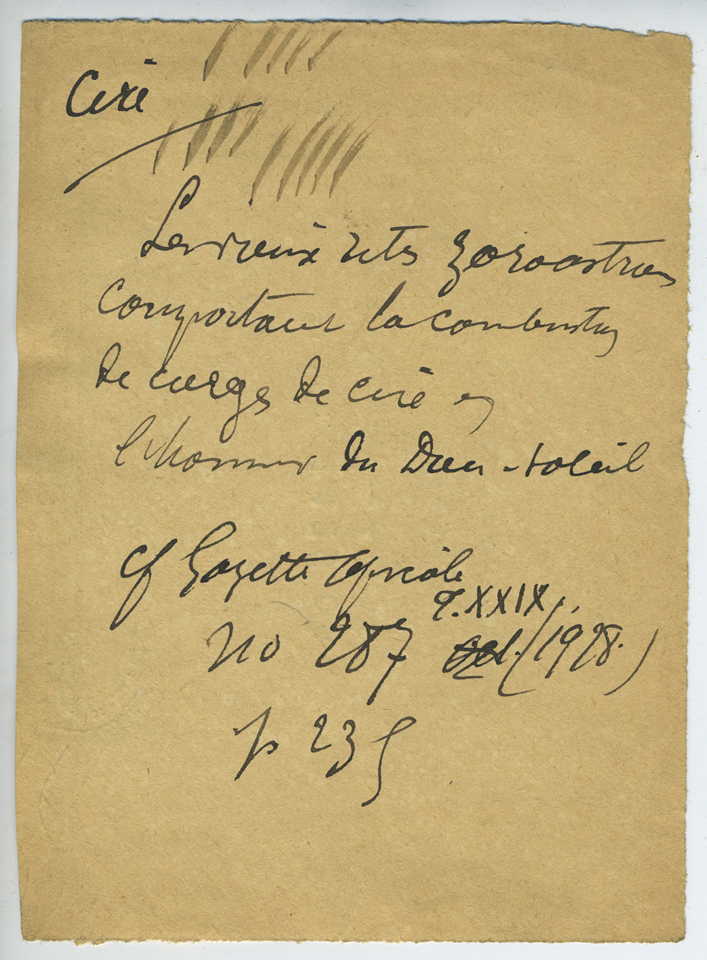 Cire
Les vieux rits zoroastriens
comportaient la combustion
de cierges de cire en
l'honneur du Dieu-soleil
cf Gazette apicole
T. XXIX,
no 287 (1928.)
p 235